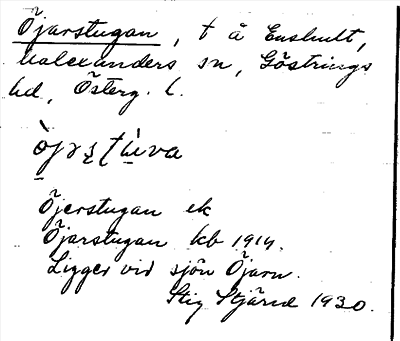 Öjarstugan, t å Enshult,
Malexanders sn, Göstrings
hd, Österg. l.
Öjerstugan ek
Öjarstugan kb 1914.
Ligger vid sjön Öjarn.
Stig Stjärnd 1930.